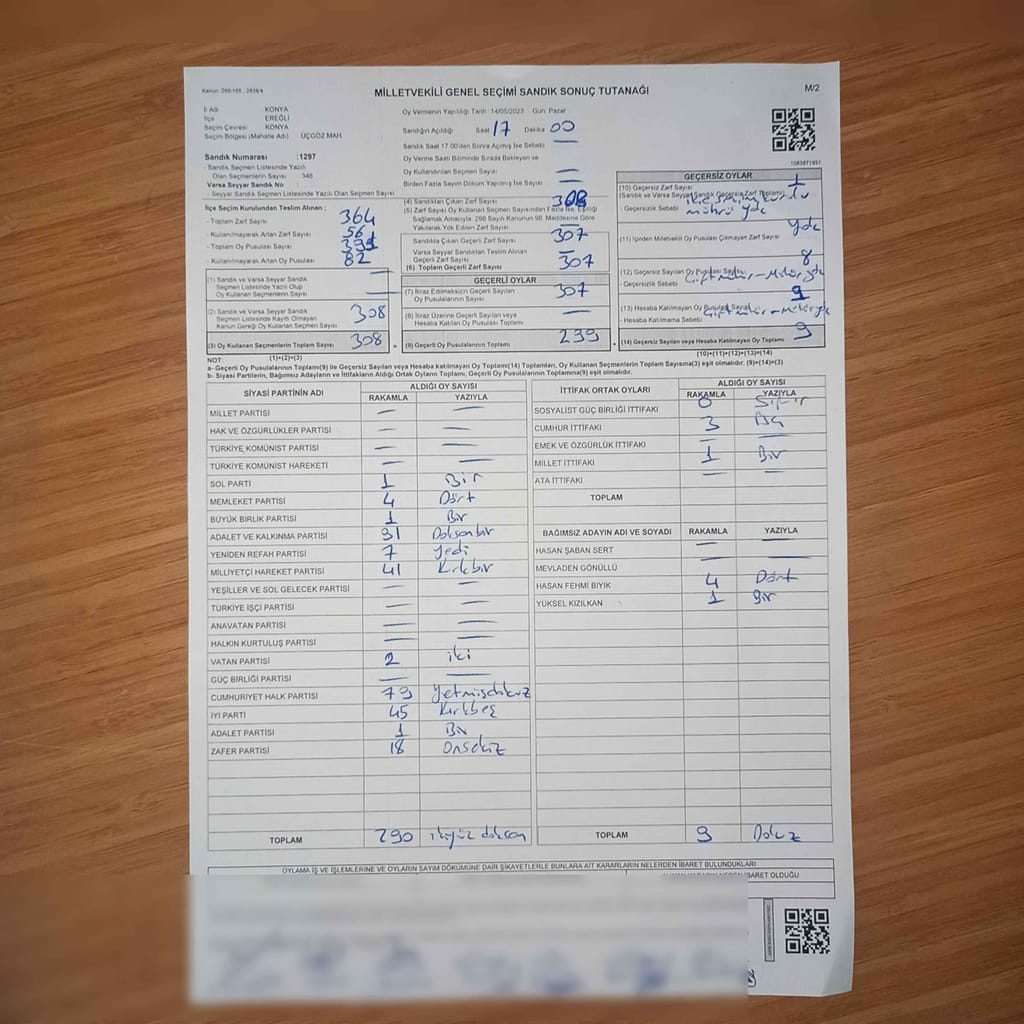 Kanun: 298/105 , 2839/4
MİLLETVEKİLİ GENEL SEÇİMİ SANDIK SONUÇ TUTANAĞI
M/2
İl Adı KONYA
İlçe EREĞLİ
Seçim Çevresi KONYA
Seçim Bölgesi (Mahalle Adı) ÜÇGÖZ MAH.
Sandık Numarası :1297
- Sandık Seçmen Listesinde Yazılı
Olan Seçmenlerin Sayısı 346
Varsa Seyyar Sandık No
- Seyyar Sandık Seçmen Listesinde Yazılı Olan Seçmen Sayısı
Oy Vermenin Yapıldığı Tarih :14/05/2023 Gün: Pazar
Sandığın Açıldığı Saat 17 Dakika 00
Sandık Saat 17.00'den Sonra Açılmış İse Sebebi —
Oy Verme Saati Bitiminde Sırada Bekleyen ve
Oy Kullandırılan Seçmen Sayısı —
Birden Fazla Sayım Döküm Yapılmış İse Sayısı —
İlçe Seçim Kurulundan Teslim Alınan ;
- Toplam Zarf Sayısı 364
- Kullanılmayarak Artan Zarf Sayısı 56
- Toplam Oy Pusulası Sayısı
- Kullanılmayarak Artan Oy Pusulası 82
(1) Sandık ve Varsa Seyyar Sandık
Seçmen Listesinde Yazılı Olup
Oy Kullanan Seçmenlerin Sayısı —
(2) Sandık ve Varsa Seyyar Sandık
Seçmen Listesinde Kayıtlı Olmayan
Kanun Gereği Oy Kullanan Seçmen Sayısı 308
(3) Oy Kullanan Seçmenlerin Toplam Sayısı 308
(4) Sandıktan Çıkan Zarf Sayısı 308
(5) Zarf Sayısı Oy Kullanan Seçmen Sayısından Fazla İse, Eşitliği
Sağlamak Amacıyla; 298 Sayılı Kanunun 98. Maddesine Göre
Yakılarak Yok Edilen Zarf Sayısı —
Sandıkta Çıkan Geçerli Zarf Sayısı 307
Varsa Seyyar Sandıktan Teslim Alınan
Geçerli Zarf Sayısı —
(6) Toplam Geçerli Zarf Sayısı 307
GEÇERLİ OYLAR
(7) İtiraz Edilmeksizin Geçerli Sayılan
Oy Pusulalarının Sayısı 307
(8) İtiraz Üzerine Geçerli Sayılan veya
Hesaba Katılan Oy Pusulası Toplamı —
(9) Geçerli Oy Pusulalarının Toplamı 299
1063871991
GEÇERSİZ OYLAR
(10) Geçersiz Zarf Sayısı 1
(Sandık ve Varsa Seyyar Sandık Geçersiz Zarf Toplamı)
- Geçersizlik Sebebi ilçe seçim kurulu
mührü yok
(11) İçinden Milletvekili Oy Pusulası Çıkmayan Zarf Sayısı yok
(12) Geçersiz Sayılan Oy Pusulası Sayısı 8
- Geçersizlik Sebebi Çift mühür-Mühür yok
(13) Hesaba Katılmayan Oy Pusulası Sayısı 9
- Hesaba Katılmama Sebebi Çift mühür-Mühür yok
(14) Geçersiz Sayılan veya Hesaba Katılmayan Oy Toplamı 9
NOT: (1)+(2)=(3)
(10)+(11)+(12)+(13)=(14)
a- Geçerli Oy Pusulalarının Toplamı(9) ile Geçersiz Sayılan veya Hesaba katılmayan Oy Toplamı(14) Toplamları, Oy Kullanan Seçmenlerin Toplam Sayısına(3) eşit olmalıdır. (9)+(14)=(3)
b- Siyasi Partilerin, Bağımsız Adayların ve İttifakların Aldığı Ortak Oyların Toplamı, Geçerli Oy Pusulalarının Toplamına(9) eşit olmalıdır.
SİYASİ PARTİNİN ADI ALDIĞI OY SAYISI
RAKAMLA YAZIYLA
MİLLET PARTİSİ — —
HAK VE ÖZGÜRLÜKLER PARTİSİ — —
TÜRKİYE KOMÜNİST PARTİSİ — —
TÜRKİYE KOMÜNİST HAREKETİ — —
SOL PARTİ 1 Bir
MEMLEKET PARTİSİ 4 Dört
BÜYÜK BİRLİK PARTİSİ 1 Bir
ADALET VE KALKINMA PARTİSİ 91 Doksanbir
YENİDEN REFAH PARTİSİ 7 Yedi
MİLLİYETÇİ HAREKET PARTİSİ 41 Kırkbir
YEŞİLLER VE SOL GELECEK PARTİSİ — —
TÜRKİYE İŞÇİ PARTİSİ — —
ANAVATAN PARTİSİ — —
HALKIN KURTULUŞ PARTİSİ — —
VATAN PARTİSİ 2 iki
GÜÇ BİRLİĞİ PARTİSİ — —
CUMHURİYET HALK PARTİSİ 79 Yetmişdokuz
İYİ PARTİ 45 Kırkbeş
ADALET PARTİSİ 1 Bir
ZAFER PARTİSİ 18 Onsekiz
TOPLAM 290 ikiyüz doksan
İTTİFAK ORTAK OYLARI ALDIĞI OY SAYISI
RAKAMLA YAZIYLA
SOSYALİST GÜÇ BİRLİĞİ İTTİFAKI 0 Sıfır
CUMHUR İTTİFAKI 3
EMEK VE ÖZGÜRLÜK İTTİFAKI — —
MİLLET İTTİFAKI 1 Bir
ATA İTTİFAKI — —
TOPLAM
BAĞIMSIZ ADAYIN ADI VE SOYADI RAKAMLA YAZIYLA
HASAN ŞABAN SERT — —
MEVLADEN GÖNÜLLÜ — —
HASAN FEHMİ BIYIK 4 Dört
YÜKSEL KIZILKAN 1 Bir
TOPLAM 9 Dokuz
OYLAMA İŞ VE İŞLEMLERİNE VE OYLARIN SAYIM DÖKÜMÜNE DAİR ŞİKAYETLERLE BUNLARA AİT KARARLARIN NELERDEN İBARET BULUNDUKLARI
İBARET OLDUĞU